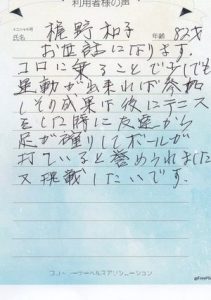 利用者様の声
氏名 梶野和子 年齢 82才
お世話になります。
コロに乗ることで少しでも
運動が出来ればと参加
しその成果は後にテニス
をした時に友達から
足が確りしてボールが
打ていると誉められました
又挑戦したいです。